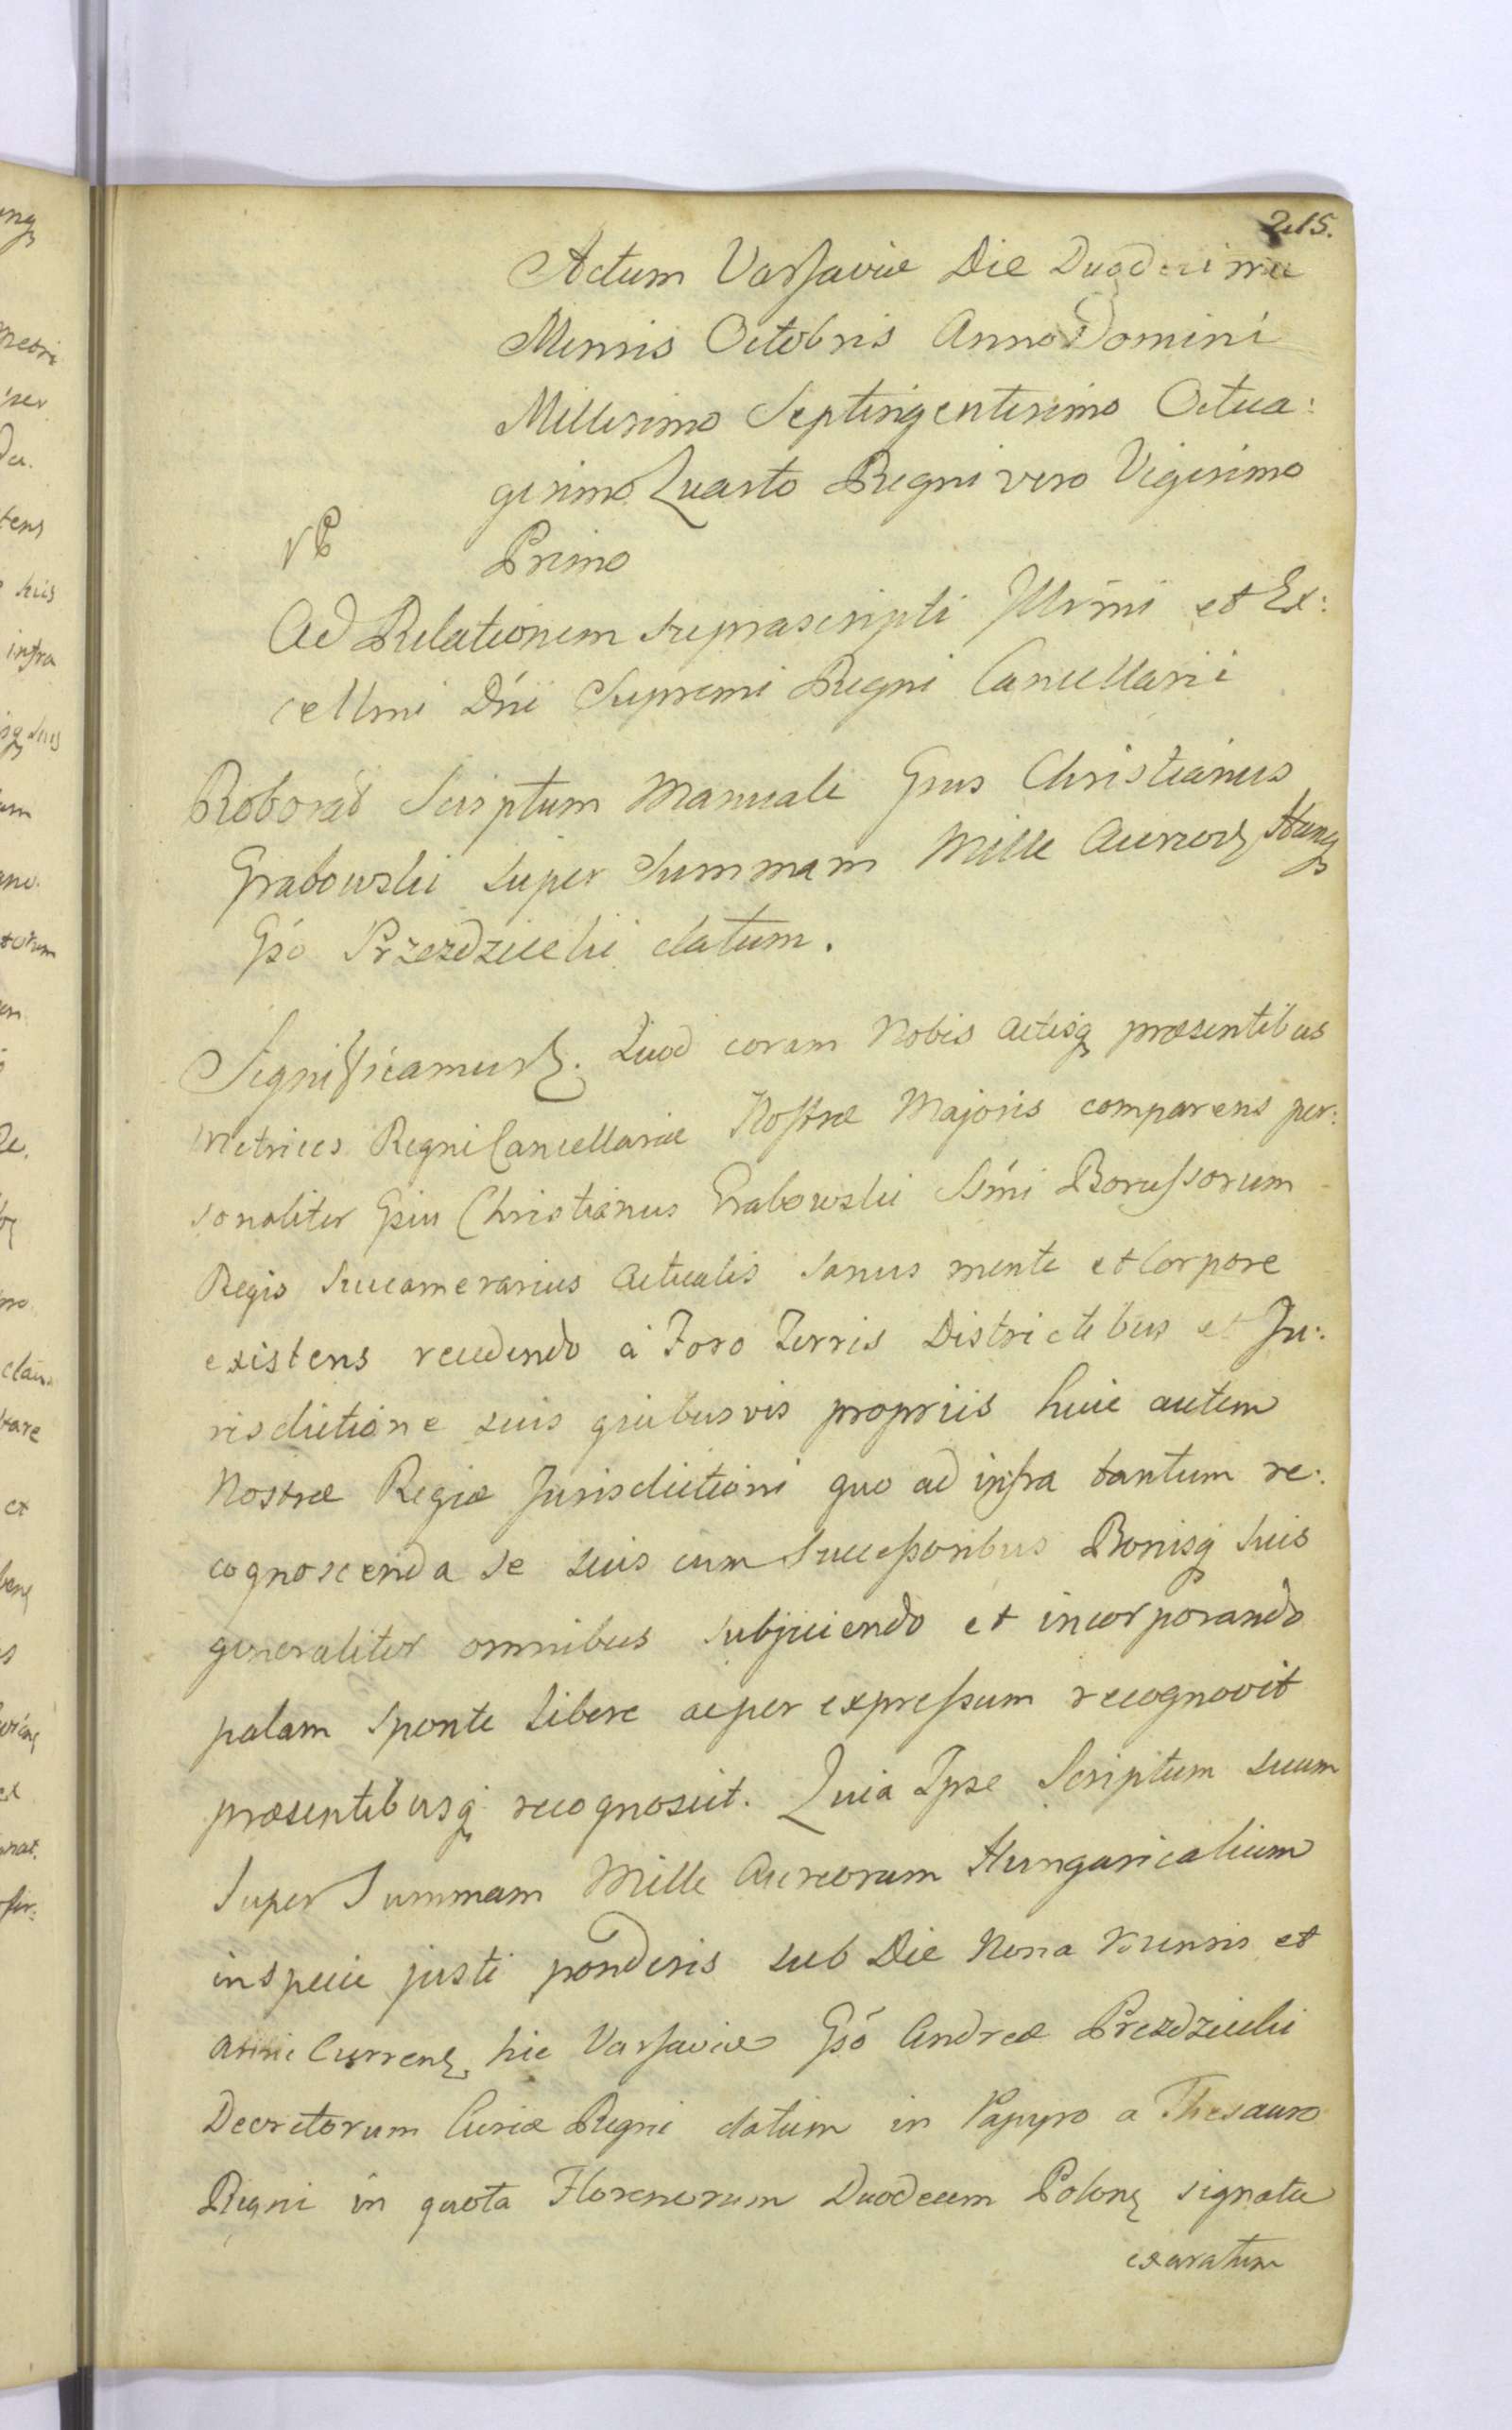 215.
Actum Varsaviæ Die Duodecima
Mensis Octobris Anno Domini
Millesimo Septingentesimo Octua:
gesimo Quarto Regni vero Vigesimo
Primo
Ad Relationem supraascripti Illrmi et Ex:
cellmi Dni Supremi Regni Cancellarii
Roborat Scriptum Manuale Gsus Christianus
Grabowski super Summam Mille Aureor Hung
Gso Przezdziecki datum.
Significamus. Quod coram Nobis Actisq præsentibus
Metrices Regni Cancellariæ Nostræ Majoris comparens per:
sonaliter Gsus Christianus Grabowski Ssmi Borussorum
Regis Succamerarius Actualis sanus mente et Corpore
existens recedendo á Foro Terris Districtibus et Ju:
risdictione suis quibusvis propriis huic autem
Nostræ Regiæ Jurisdictioni quo ad infra tantum re:
cognoscenda se suis cum Successoribus Bonisq suis
generaliter omnibus subjiciendo et incorporando
palam Sponte Libere ac per expressum recognovit
præsentibusq recognoscit. Quia Ipse Scriptum suum
Super Summam Mille Aureorum Hungaricalium
in specie justi ponderis sub Die Nona Mensis et
Anni Curren, hic Varsaviæ Gso Andreæ Przezdziecki
Decretorum Curiæ Regni datum in Papyro a Thesauro
Regni in quota Florenorum Duodecim Polon signata
exaratum